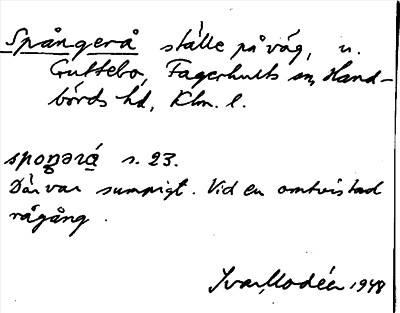 Spångerå ställe på väg, u.
Guttebo, Fagerhults sn, Hand-
börds hd, Klm. l.
spoŋərá s. 23.
Där var sumpigt. Vid en omtvistad
rågång.
Ivar Modéer 1948